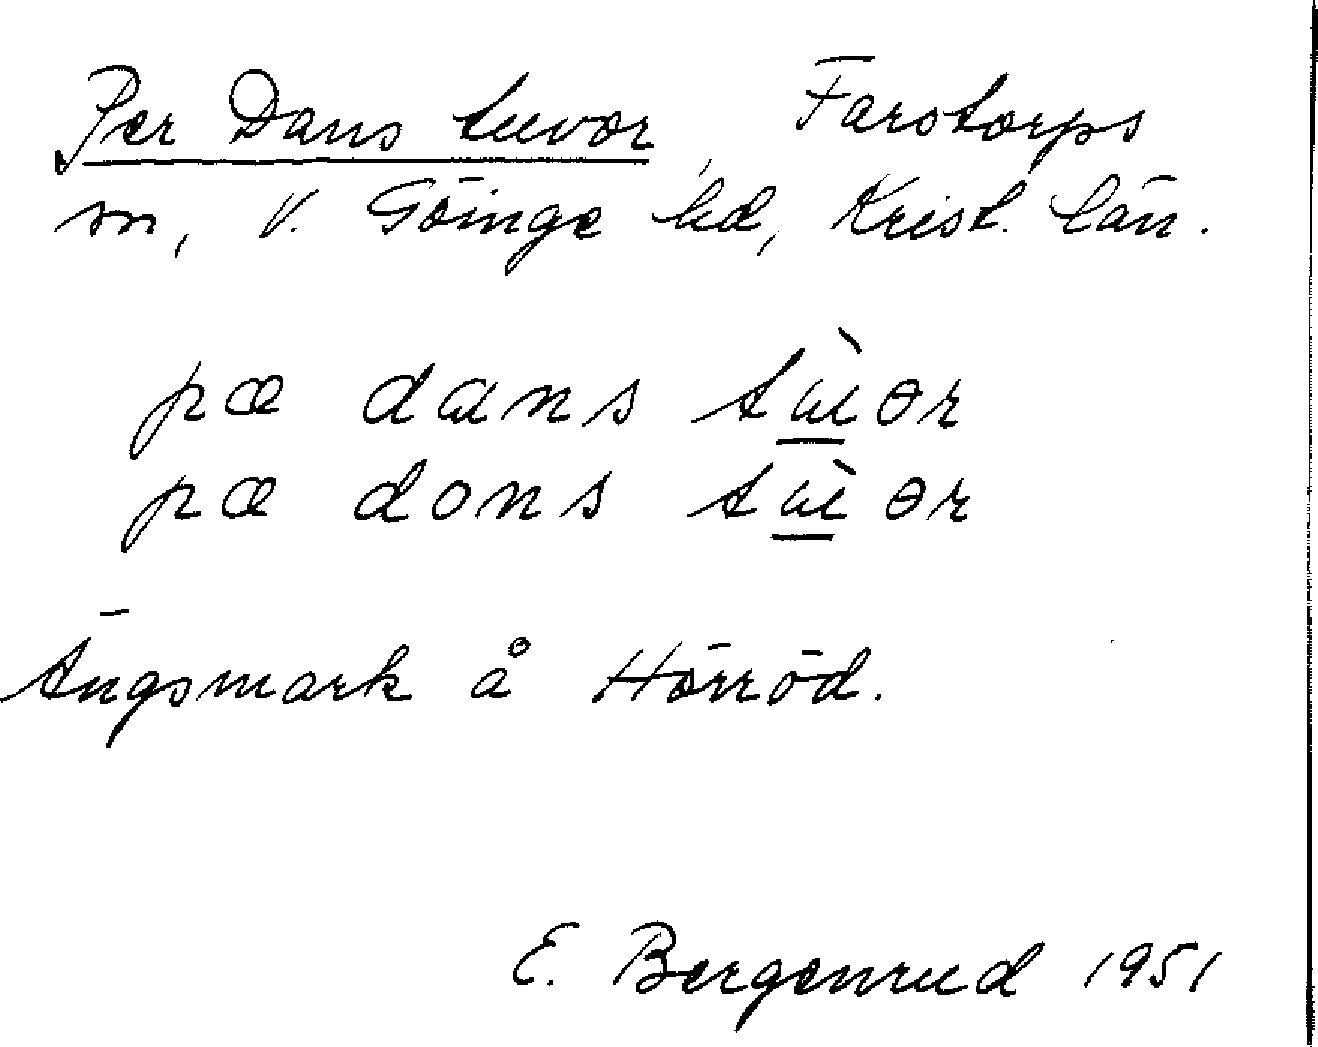 Per Dans tuvor, Farstorps
sn, V. Göinge hd, Krist. län.
pæ dans tɯ̀ər
pæ dons tɯ̀ər
Ängsmark å Hörröd.
E. Bergenrud 1951